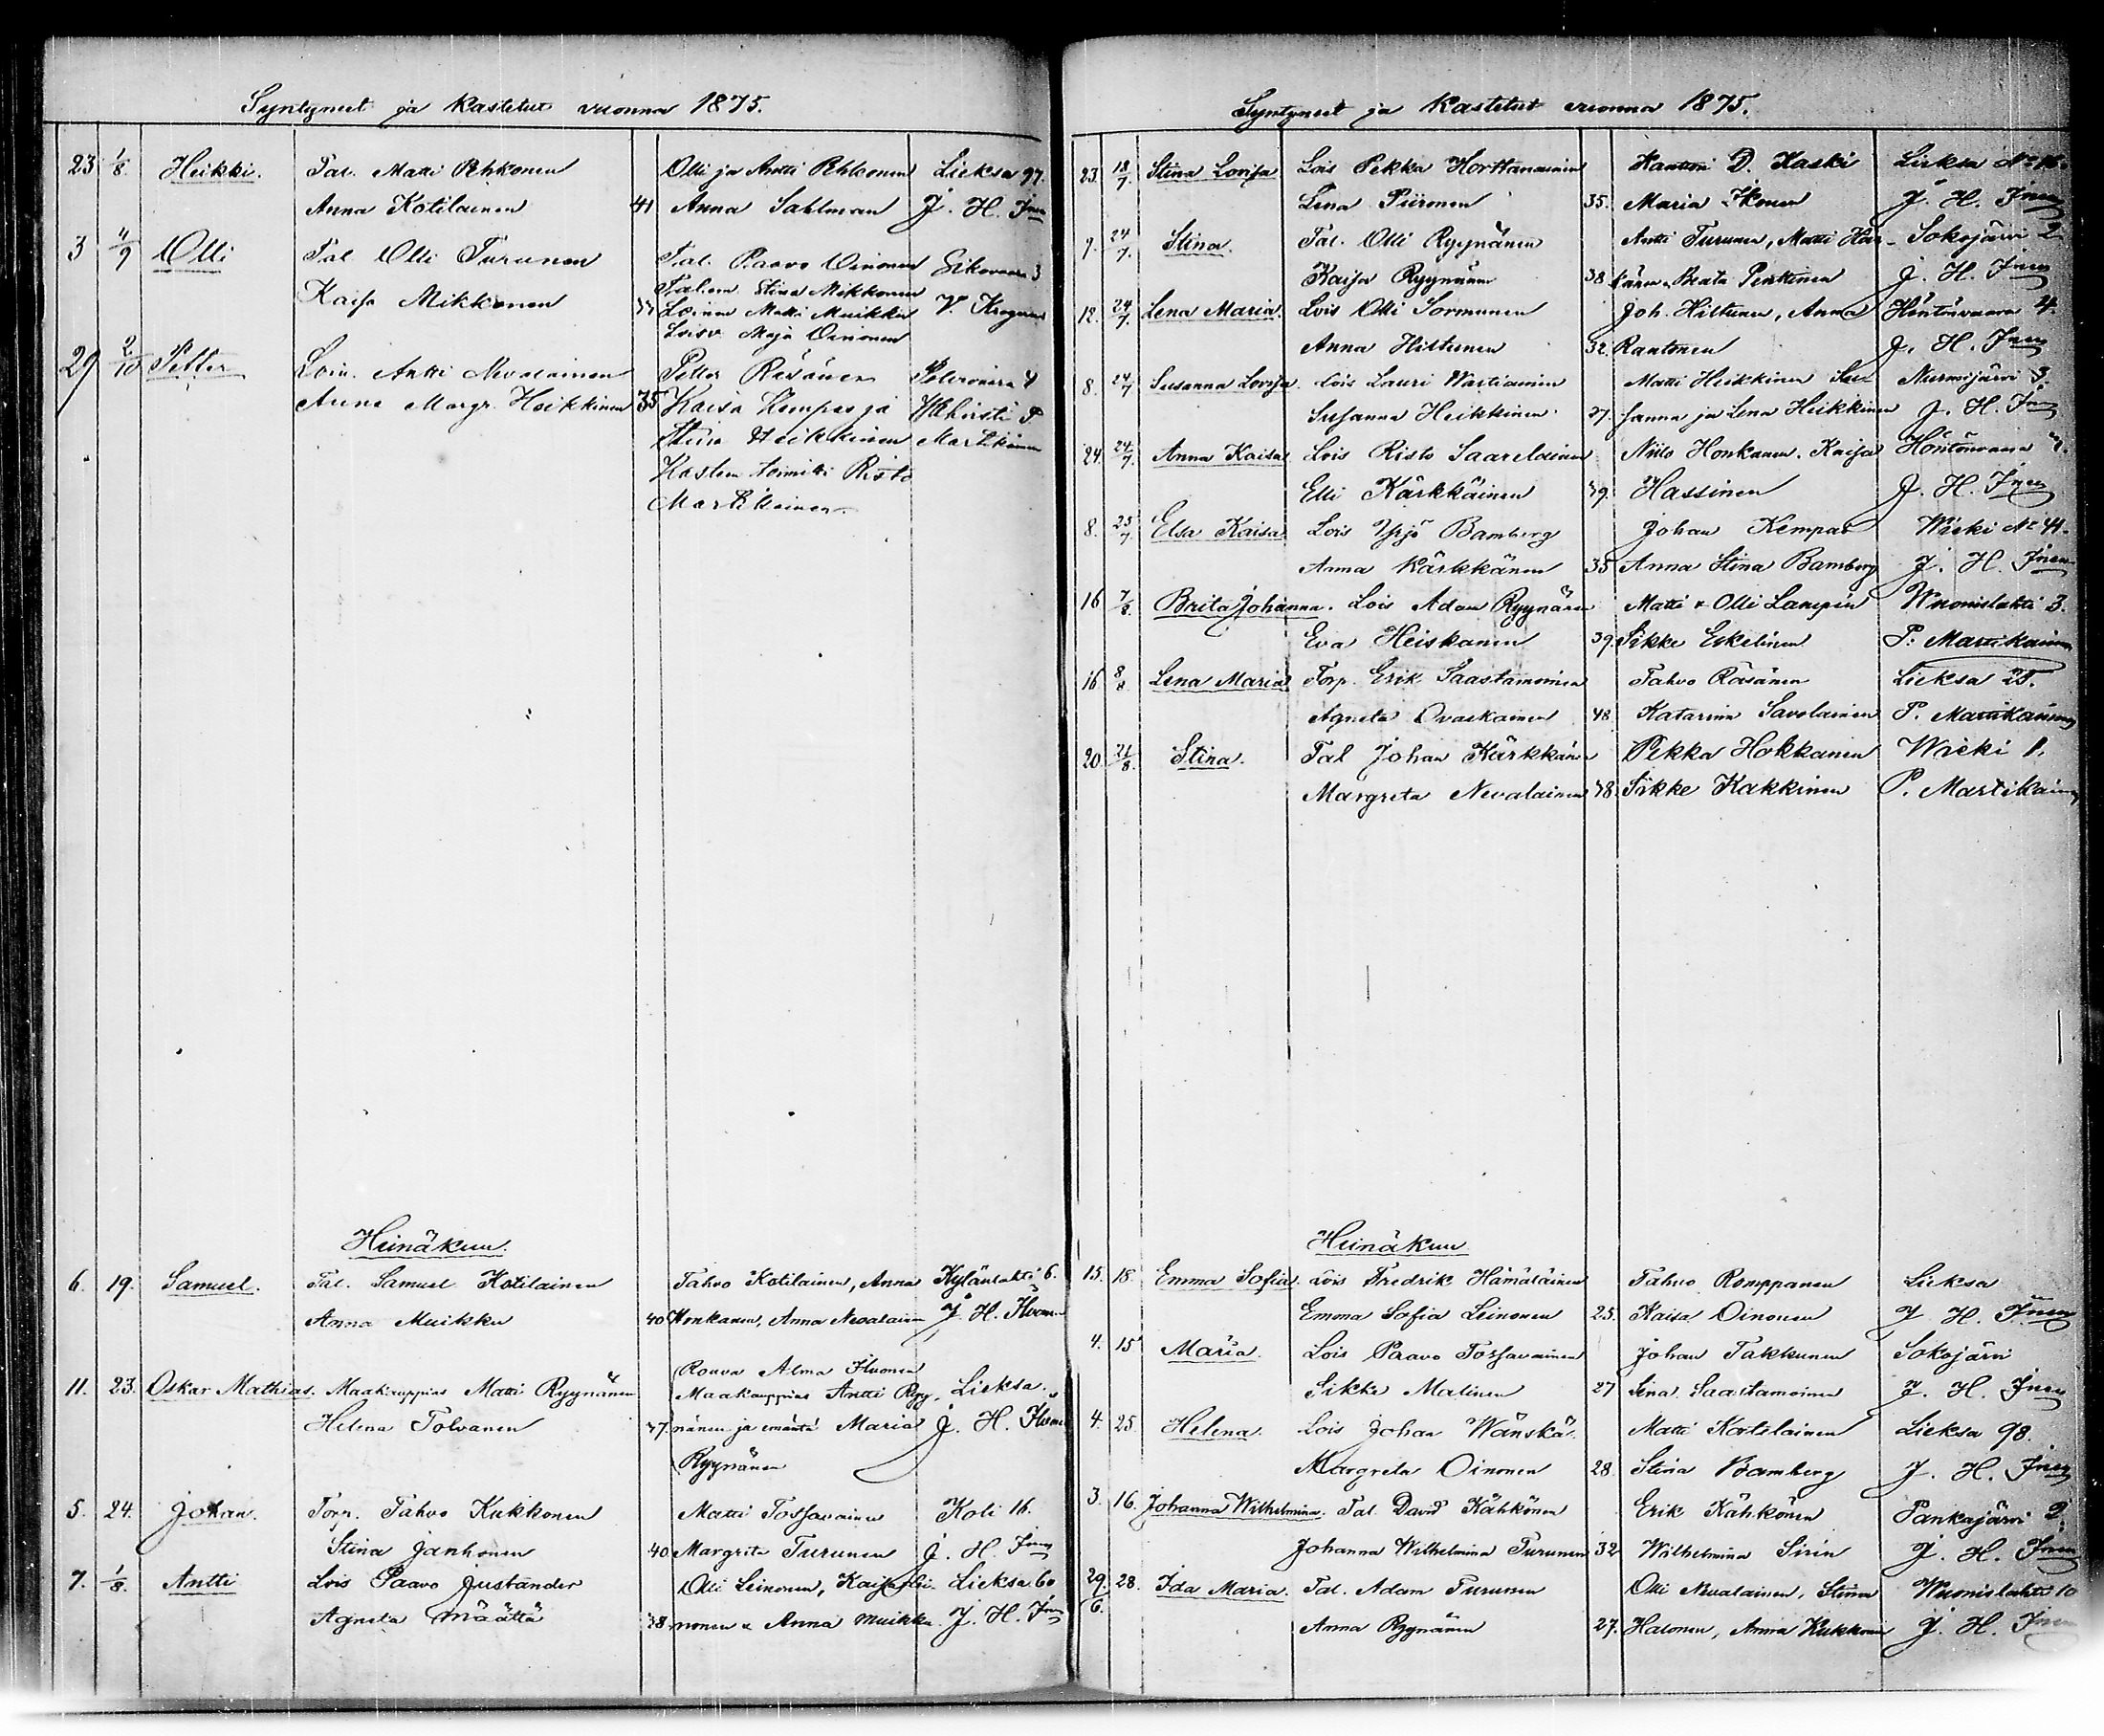 Syntyneet ja Kastetut vuonna 1875.
23 1/8. Heikki. Tal. Matti Pehkonen Olli ja Antti Pehkonen Lieksa 97.
Anna Kotilainen 41 Anna Sahlman J. H.
3 4/9 Olli Tal Olli Turunen Tal. Paavo Oinonen 3
Kaisa Mikkonen Stina Mikkonen
Loinen Matti Muikku V.
Loisv. Maja Oinonen
29 2/10 Petter Loin. Antti Nevalainen Petter Räsänen 4
Anna Margr. Heikkinen 35 Kaisa Kempas ja
Stina Heikkinen Martikainen
Kasteen toimitti Risto
Martikainen.
Heinäkuu.
6. 19. Samuel. Tal. Samuel Kotilainen Tahvo Kotilainen, Anna Kylänlahti 6.
Anna Muikku 40 Honkanen, Anna Nevalainen J. H.
Rouva Alma
11. 23. Oskar Mathias. Maakauppias Matti Ryynänen Maakauppias Antti Ryy- Lieksa.
Helena Tolvanen 47. nänen ja emäntä Maria J. H.
Ryynänen
5. 24. Johan. Torp. Tahvo Kukkonen Matti Tossavainen Koli 16.
Stina Janhonen 40. Margreta Turunen J. H.
7. 1/8. Antti Lois Paavo Justander Olli Leinonen, Kaisa Lei- Lieksa 60
Agneta Määttä 38 nonen & Anna Muikku J. H.
Syntyneet ja Kastetut vuonna 1875.
23. 18/7. Stina Lovisa Lois Pekka Horttanainen Kanttori D. Kaski Lieksa No 16.
Lena Piironen 35. Maria Ikonen J. H.
9. 24/7. Stina. Tal. Olli Ryynänen Antti Turunen, Matti Här- Sokojärvi 2
Kaisa Ryynänen 38. Beata Penttinen J. H.
12. 24/7. Lena Maria. Lois Olli Sormunen Joh. Hiltunen, Anna Höntönvaara 4.
Anna Hiltunen 32. Rantonen J. H.
8. 24/7 Susanna Lovisa. Lois Lauri Wartiainen Matti Heikkinen Su- Nurmijärvi 3.
Susanna Heikkinen 27. sanna ja Lena Heikkinen J. H.
24. 24/7. Anna Kaisa Lois Risto Saarelainen Niilo Honkanen, Kaisa Höntönvaara
Elli Kärkkäinen 39. Hassinen J. H.
8. 25/7 Elsa Kaisa Lois Yrjö Bamberg Johan Kempas Wieki No 41.
Anna Kärkkänen 35 Anna Stina Bamberg J. H.
16 7/8. Brita Johanna. Lois Adam Ryynänen Matti & Olli Lampin Wuonislahti 3.
Eva Heiskanen 39. Sikke Eskelinen P. Martikainen
16 8/8. Lena Maria Torp. Erik Saastamoinen Tahvo Räsänen Lieksa 25.
Agneta Ovaskainen 48. Katarina Savolainen P. Martikainen
20. 21/8. Stina. Tal Johan Kärkkänen Pekka Hokkanen Wieki 1.
Margreta Nevalainen 38. Sikke Kakkinen P. Martikainen
Heinäkuu
15. 18. Emma Sofia. Lois Fredrik Hämäläinen Tahvo Romppanen Lieksa
Emma Sofia Leinonen 25. Kaisa Oinonen J. H.
4. 15 Maria. Lois Paavo Tossavainen Johan Takkunen Sokojärvi
Sikke Malinen 27 Lena Saastamoinen J. H.
4. 25. Helena. Lois Johan Wänskä. Matti Kotilainen Lieksa 98.
Margreta Oinonen 28. Stina Bamberg J. H.
3. 16. Johanna Wilhelmina. Tal. David Kähkönen Erik Kähkönen Pankajärvi 2.
Johanna Wilhelmina Turunen 32 Wilhelmina Siren J. H.
29/6. 28. Ida Maria. Tal. Adam Turunen Olli Nevalainen, Stina Wuonislahti 10
Anna Ryynänen 27. Halonen, Anna Kukkonen J. H.